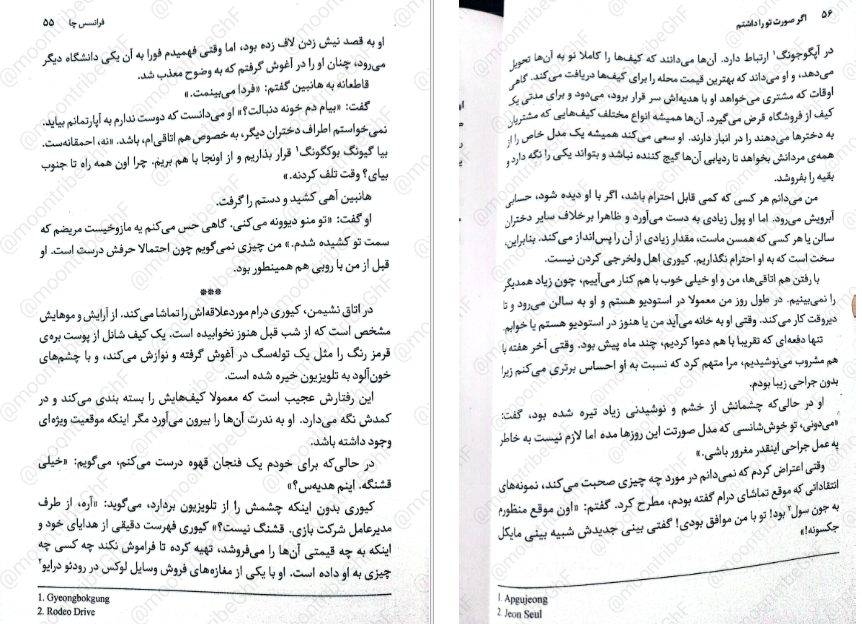 فرانسس چا ۵۵
او به قصد نیش زدن لاف زده بود، اما وقتی فهمیدم فورا به آن یکی دانشگاه دیگر
می‌رود، چنان او را در آغوش گرفتم که به وضوح معذب شد.
قاطعانه به هانبین گفتم: «فردا می‌بینمت.»
گفت: «بیام دم خونه دنبالت؟» او می‌دانست که دوست ندارم به آپارتمانم بیاید.
نمی‌خواستم اطراف دختران دیگر، به خصوص هم اتاقی‌ام، باشد. «نه، احمقانه‌ست.
بیا گیونگ بوکگونگ۱ قرار بذاریم و از اونجا با هم بریم. چرا اون همه راه تا جنوب
بیای؟ وقت تلف کردنه.»
هانبین آهی کشید و دستم را گرفت.
او گفت: «تو منو دیوونه می‌کنی. گاهی حس می‌کنم یه مازوخیست مریضم که
سمت تو کشیده شدم.» من چیزی نمی‌گویم چون احتمالا حرفش درست است. او
قبل از من با روبی هم همینطور بود.
***
در اتاق نشیمن، کیوری درام موردعلاقه‌اش را تماشا می‌کند. از آرایش و موهایش
مشخص است که از شب قبل هنوز نخوابیده است. یک کیف شانل از پوست بره‌ی
قرمز رنگ را مثل یک توله‌سگ در آغوش گرفته و نوازش می‌کند، و با چشم‌های
خون‌آلود به تلویزیون خیره شده است.
این رفتارش عجیب است که معمولا کیف‌هایش را بسته بندی می‌کند و در
کمدش نگه می‌دارد. او به ندرت آن‌ها را بیرون می‌آورد مگر اینکه موقعیت ویژه‌ای
وجود داشته باشد.
در حالی‌که برای خودم یک فنجان قهوه درست می‌کنم، می‌گویم: «خیلی
قشنگه. اینم هدیه‌س؟»
کیوری بدون اینکه چشمش را از تلویزیون بردارد، می‌گوید: «آره، از طرف
مدیرعامل شرکت بازی. قشنگ نیست؟» کیوری فهرست دقیقی از هدایای خود و
اینکه به چه قیمتی آن‌ها را می‌فروشد، تهیه کرده تا فراموش نکند چه کسی چه
چیزی به او داده است. او با یکی از مغازه‌های فروش وسایل لوکس در رودئو درایو۲
1. Gyeongbokgung
2. Rodeo Drive
۵۶ اگر صورت تو را داشتم
در آپگوجونگ۱ ارتباط دارد. آن‌ها می‌دانند که کیف‌ها را کاملا نو به آن‌ها تحویل
می‌دهد، و او می‌داند که بهترین قیمت محله را برای کیف‌ها دریافت می‌کند. گاهی
اوقات که مشتری می‌خواهد او با هدیه‌اش سر قرار برود، می‌دود و برای مدتی یک
کیف از فروشگاه قرض می‌گیرد. آن‌ها همیشه انواع مختلف کیف‌هایی که مشتریان
به دخترها می‌دهند را در انبار دارند. او سعی می‌کند همیشه یک مدل خاص را از
همه‌ی مردانش بخواهد تا ردیابی آن‌ها گیج کننده نباشد و بتواند یکی را نگه دارد و
بقیه را بفروشد.
من می‌دانم هر کسی که کمی قابل احترام باشد، اگر با او دیده شود، حسابی
آبرویش می‌رود. اما او پول زیادی به دست می‌آورد و ظاهرا برخلاف سایر دختران
سالن یا هر کسی که همسن ماست، مقدار زیادی از آن را پس‌انداز می‌کند. بنابراین،
سخت است که به او احترام نگذاریم. کیوری اهل ولخرجی کردن نیست.
با رفتن هم اتاقی‌ها، من و او خیلی خوب با هم کنار می‌آییم، چون زیاد همدیگر
را نمی‌بینیم. در طول روز من معمولا در استودیو هستم و او به سالن می‌رود و تا
دیروقت کار می‌کند. وقتی او به خانه می‌آید من یا هنوز در استودیو هستم یا خوابم.
تنها دفعه‌ای که تقریبا با هم دعوا کردیم، چند ماه پیش بود. وقتی آخر هفته با
هم مشروب می‌نوشیدیم، مرا متهم کرد که نسبت به او احساس برتری می‌کنم زیرا
بدون جراحی زیبا بودم.
او در حالی‌که چشمانش از خشم و نوشیدنی زیاد تیره شده بود، گفت:
«می‌دونی، تو خوش‌شانسی که مدل صورتت این روزها مده اما لازم نیست به خاطر
یه عمل جراحی اینقدر مغرور باشی.»
وقتی اعتراض کردم که نمی‌دانم در مورد چه چیزی صحبت می‌کند، نمونه‌های
انتقاداتی که موقع تماشای درام گفته بودم، مطرح کرد. گفتم: «اون موقع منظورم
به جون سول۲ بود! تو با من موافق بودی! گفتی بینی جدیدش شبیه بینی مایکل
جکسونه!»
1. Apgujeong
2. Jeon Seul
@moontribeGhF